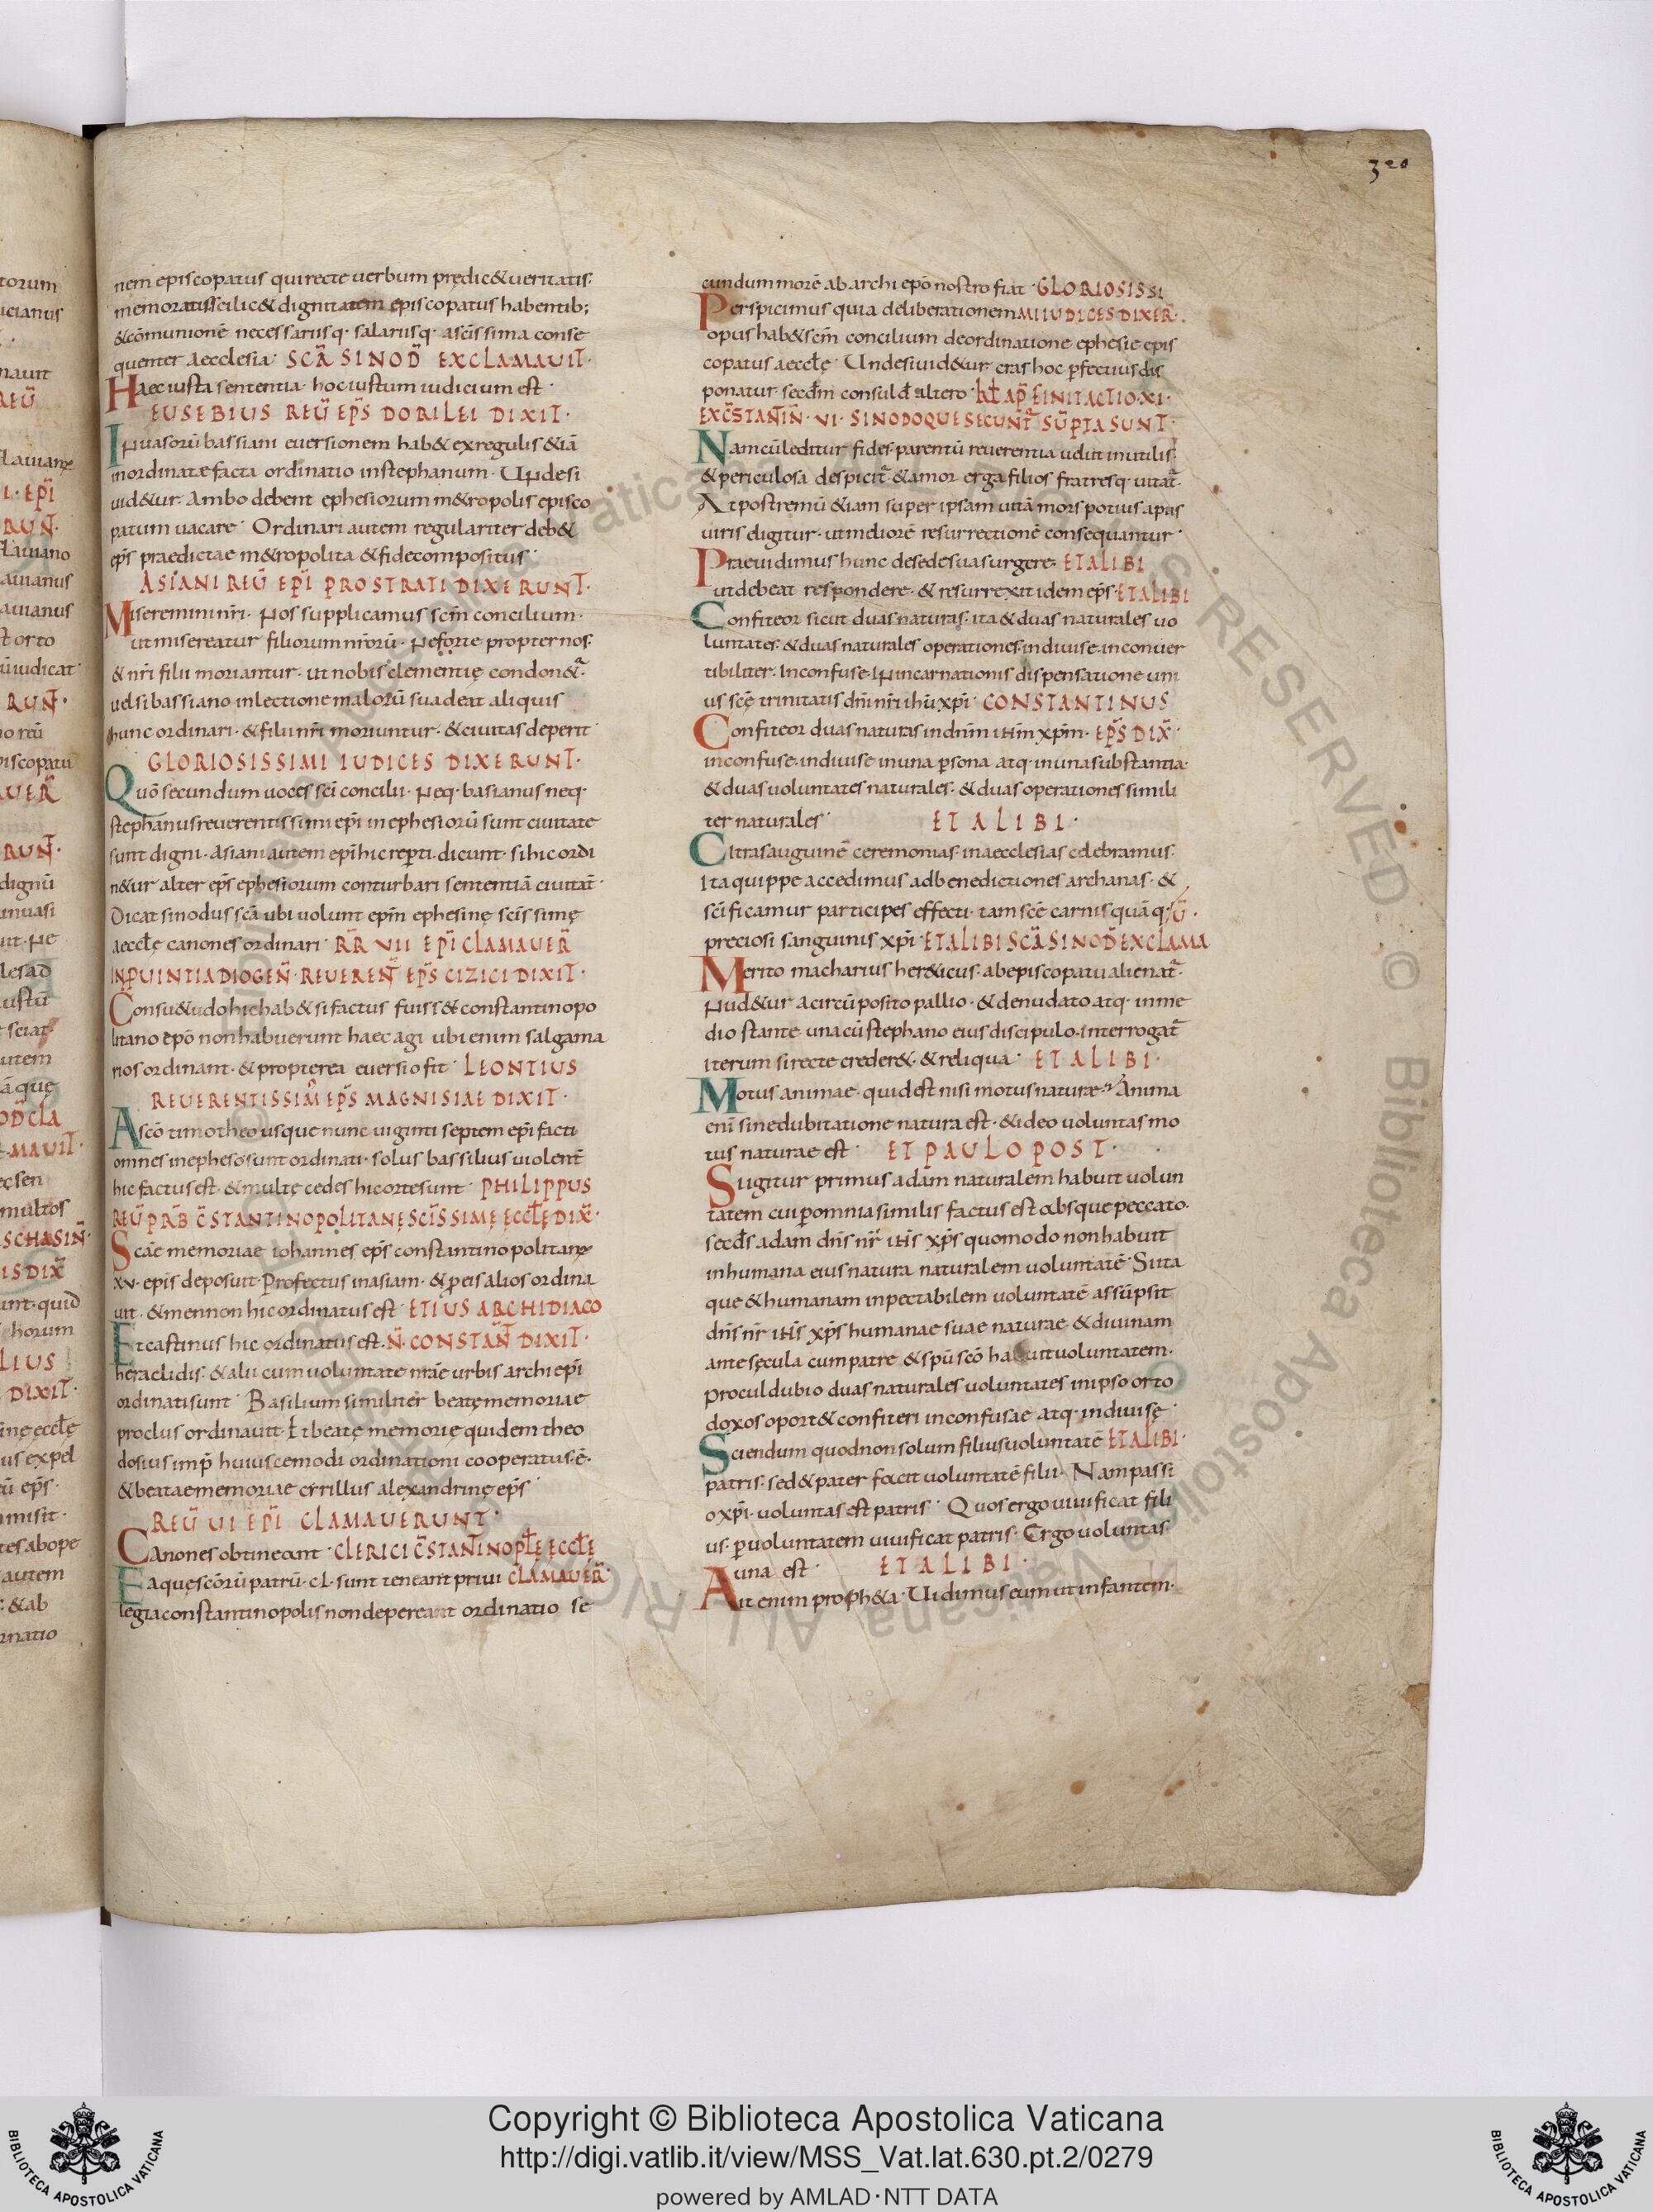 320
nem episcopatus qui recte uerbum prędic& ueritatis·
memoratis scilic& dignitatem episcopatus habentib;
& cōmunionē necessariisq· salariisq· a scīssima conse
quenter aecclesia· SCĀ SINOD̄ EXCLAMAUIT·
Haec iusta sententia· hoc iustum iudicium est·
EUSEBIUS REŪ EP̄S DORILEI DIXIT·
Inuasorū bassiani euersionem hab& ex regulis & iā
inordinatæ facta ordinatio in stephanum· Unde si
uid&ur· Ambo debent ephesiorum m&ropolis episco
patum uacare· Ordinari autem regulariter deb&
ep̄s praedictae m&ropolita & fide compositus·
ASIANI REŪ EP̄I PROSTRATI DIXERUNT·
Miseremini nr̄i· Nos supplicamus sc̄m concilium·
ut misereatur filiorum nr̄orū· Ne forte propter nos·
& nr̄i filii moriantur· ut nobis clementię condon&·
uel si bassiano in lectione malorū suadeat aliquis
hunc ordinari· & filii nr̄i moriuntur· & ciuitas deperit·
GLORIOSISSIMI IUDICES DIXERUNT·
Quō secundum uoces sc̄i concilii· Neq· basianus neq·
stephanus reuerentissimi ep̄i in ephesiorū sunt ciuitate
sunt digni· asiani autem ep̄i hic rep̄ti dicunt· si hic ordi
n&ur alter ep̄s ephesiorum conturbari sententiā ciuitat̄·
Dicat sinodus sc̄a ubi uolunt ep̄m ephesinę sc̄issimę
aeccłę canones ordinari· RR̄ VII EP̄I CLAMAUER̄
IN PUINTIA DIOGEN̄· REUEREN̄T EP̄S CIZICI DIXIT·
Consu&udo hic hab& si factus fuiss& constantinopo
litano ep̄o non habuerunt haec agi ubi enim salgama
rios ordinant· & propterea euersio fit· LEONTIUS
REUERENTISSIM̄ EP̄S MAGNISIAE DIXIT·
A sc̄o timotheo usque nunc uiginti septem ep̄i facti
omnes in epheso sunt ordinati· solus bassilius uiolent̄
hic factus est· & multę cedes hic orte sunt· PHILIPPUS
REŪ PR̄B C̄STANTINOPOLITANĘ SCĪSSIMĘ ĘCCŁĘ DIX̄·
Scāe memoriae iohannes ep̄s constantinopolitanę
xv· epis deposuit· Profectus in asiam· & p eis alios ordina
uit· & mennon hic ordinatus est· ETIUS ARCHIDIACO
Et castinus hic ordinatus est· N̄· CONSTAN̄T DIXIT·
heraclidis· & alii cum uoluntate nr̄ae urbis archi ep̄i
ordinati sunt· Basilium similiter beatę memoriae
proclus ordinauit· Et beatę memorię quidem theo
dosius imp̄ huiuscemodi ordinationi cooperatus· ē·
& beatae memoriae cyrillus alexandrinę ep̄s·
REŪ UI EP̄I CLAMAUERUNT·
Canones obtineant· CLERICI C̄STANTINOPŁĘ ĘCCŁĘ
Ea quę sc̄orū patrū· cl· sunt teneant priui CLAMAUER̄·
legia constantinopolis non depereant ordinatio se
cundum morē ab archi ep̄o nostro fiat· GLORIOSISSI
Perspicimus quia deliberationem MI IUDICES DIXER̄·
opus hab& sc̄m concilium de ordinatione ephesie epis
copatus aeccłę· Unde si uid&ur cras hoc pfectius dis
ponatur· secd̄m consuld̄ altero· KŁ APŁ FINIT ACTIO· XI·
EX C̄STAN̄TIN̄· VI· SINODO QUE SECUN̄T̄ SUP̄TA SUNT·
Nam cū leditur fides· parentū reuerentia udut inutilis
& periculosa despicit̄· & amor erga filios fratresq· uitat̄·
At postremū & iam super ipsam uitā mors potius a pas
uiris eligitur· ut meliorē resurrectionē consequantur·
Praeuidimus hunc de sede sua surgere· ET ALIBI
ut debeat respondere· & resurrexit idem ep̄s· ET ALIBI
Confiteor sicut duas naturas· ita & duas naturales uo
luntates· & duas naturales operationes· indiuise· inconuer
tibiliter· Inconfuse· In incarnationis dispensatione uni
us scę trinitatis dn̄i nr̄i ihū xp̄i· CONSTANTINUS
Confiteor duas naturas in dn̄m ihm̄ xp̄m· EP̄S DIX̄·
inconfuse· indiuise in una psona atq· in una substantia·
& duas uoluntates naturales· & duas operationes simili
ter naturales· ET ALIBI·
Citra sanguinē ceremonias· in aecclesias celebramus·
Ita quippe accedimus ad benedictiones archanas· &
sc̄ificamur participes effecti· tam scē carnis quā q·
preciosi sanguinis xp̄i· ET ALIBI SCĀ SINOD̄ EXCLAMA
Merito macharius her&icus· ab episcopatu alienat̄·
Nud&ur a circū posito pallio· & denudato atq· in me
dio stante una cū stephano eius discipulo· interrogat̄
iterum si recte creder&· & reliqua· ET ALIBI·
Motus animae· quid est nisi motus naturae? Anima
enī sine dubitatione natura est· & ideo uoluntas mo
tus naturae est· ET PAULO POST·
Si igitur primus adam naturalem habuit uolun
tatem cui p omnia similis factus est absque peccato·
secd̄s adam dn̄s nr̄ ihs̄ xp̄s quomodo non habuit
in humana eius natura naturalem uoluntatē· Si ita
que & humanam inpeccabilem uoluntatē assūpsit
dn̄s nr̄ ihs̄ xp̄s humanae suae naturae & diuinam
ante sęcula cum patre & sp̄u sc̄o habuit uoluntatem·
procul dubio duas naturales uoluntates in ipso orto
doxos oport& confiteri inconfusae atq· indiuisę·
Sciendum quod non solum filius uoluntatē ET ALIBI·
patris· sed & pater facit uoluntatē filii· Nam passi
o xp̄i· uoluntas est patris· Quos ergo uiuificat fili
us· p uoluntatem uiuificat patris· Ergo uoluntas
una est· ET ALIBI·
Ait enim proph&a· Uidimus eum ut infantem·
Copyright © Biblioteca Apostolica Vaticana
http://digi.vatlib.it/view/MSS_Vat.lat.630.pt.2/0279
powered by AMLAD·NTT DATA
BIBLIOTECA APOSTOLICA VATICANA
BIBLIOTECA APOSTOLICA VATICANA